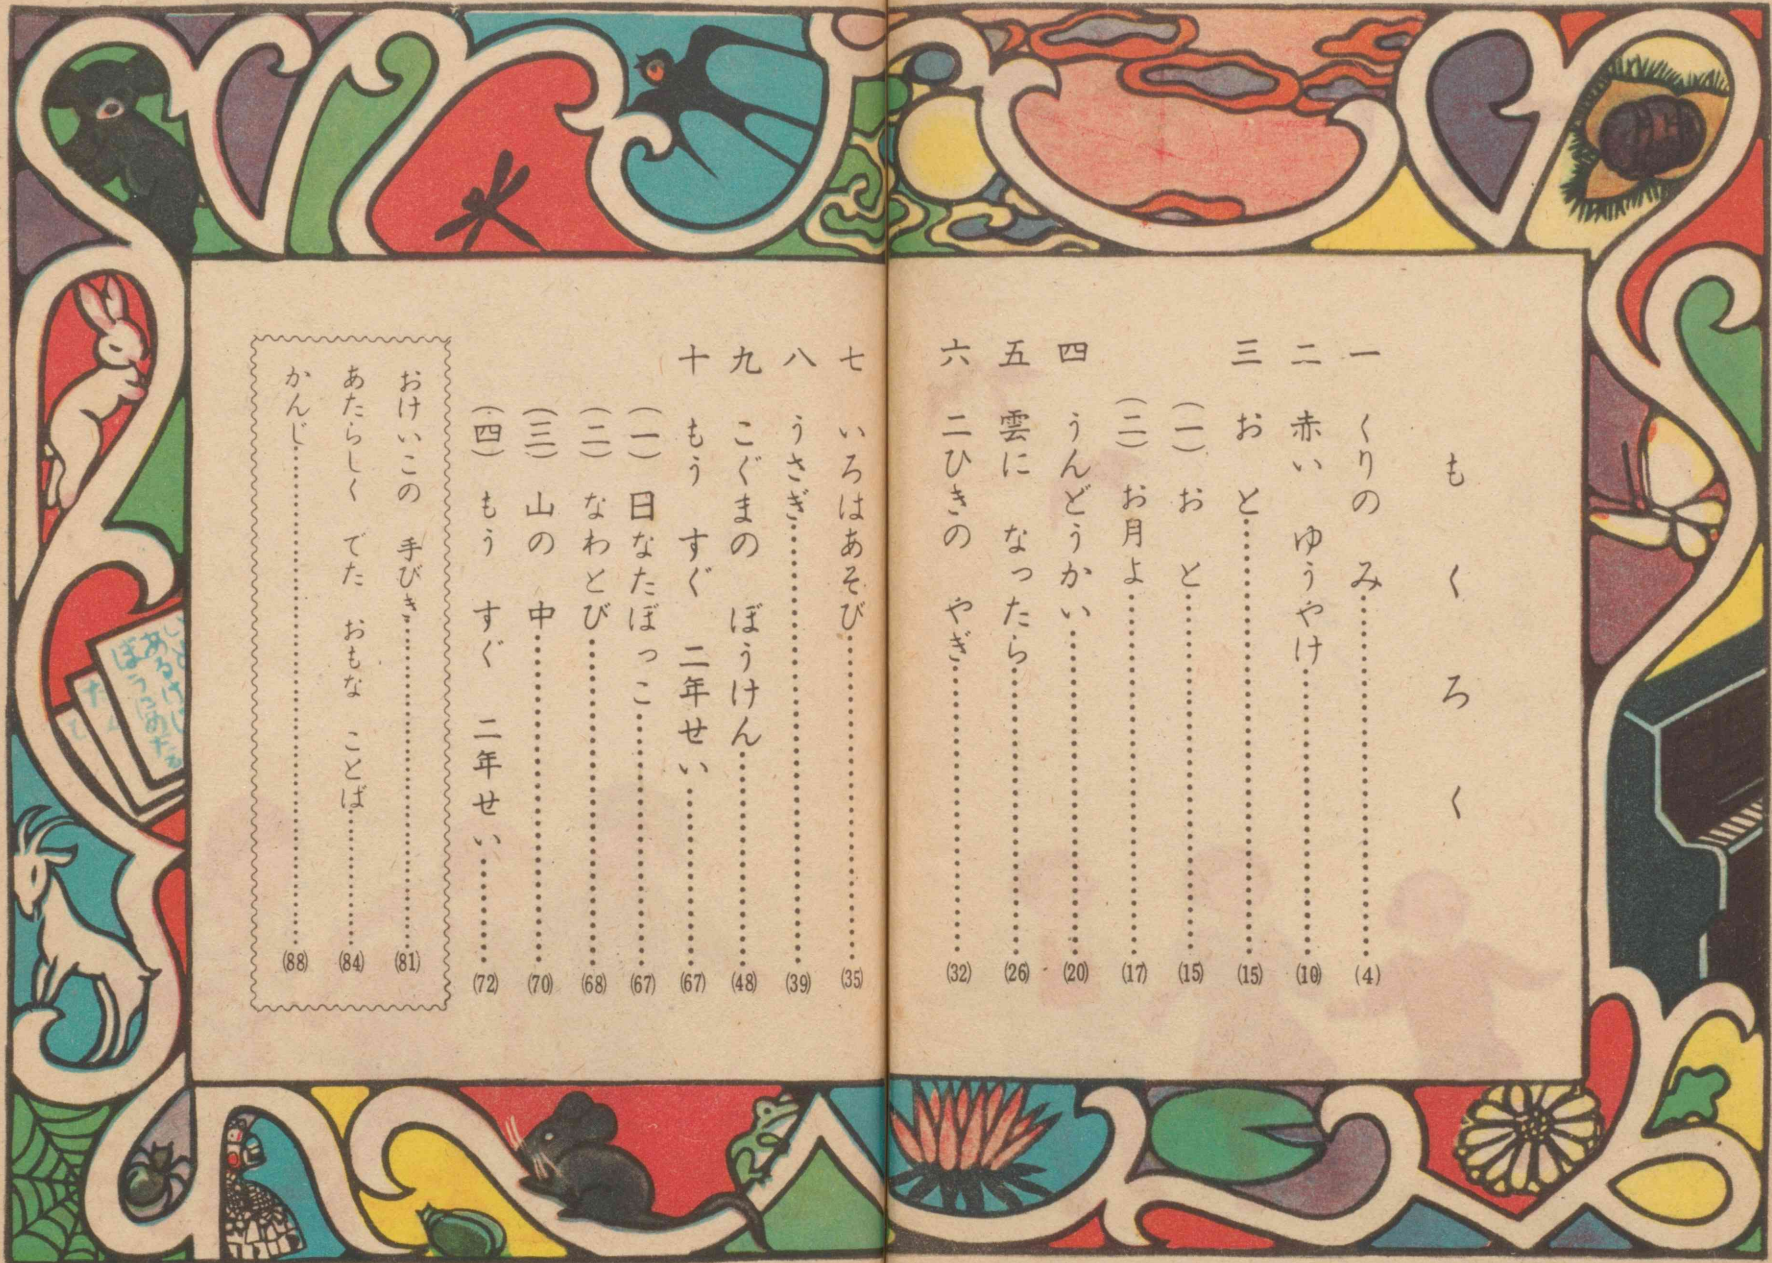 もくろく
一 くりの み……(4)
二 赤い ゆうやけ……(10)
三 お と……(15)
(一) お と……(15)
(二) お月よ……(17)
四 うんどうかい……(20)
五 雲に なったら……(26)
六 二ひきの やぎ……(32)
七 いろはあそび……(35)
八 うさぎ……(39)
九 こぐまの ぼうけん……(48)
十 もう すぐ 二年せい……(67)
(一) 日なたぼっこ……(67)
(二) なわとび……(68)
(三) 山の 中……(70)
(四) もう すぐ 二年せい……(72)
おけいこの 手びき……(81)
あたらしく でた おもな ことば……(84)
かんじ……(88)